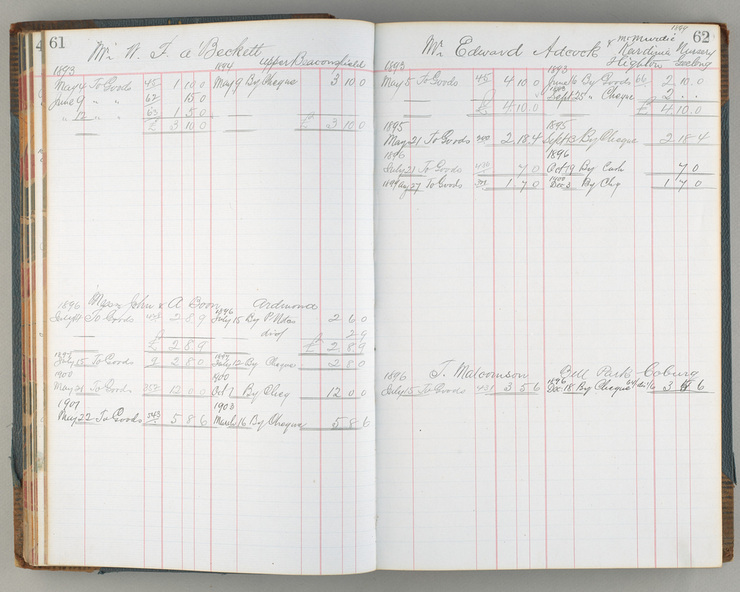 61
Mr W. F. a Beckett Upper Beaconsfield
1893 1894
May 4 To Goods 45 1 10 0 May 9 By Cheque 3 10 0
June 9 " " 62 15 0
" 12 " " 63 1 5 0
£ 3 10 0 £ 3 10 0
1896 Messrs John & A Boon Ardmona
July 9 To Goods 2 8 9 1896 July 15 By P. Notes 2 6 0
disct 2 9
£ 2 8 9 £ 2 8 9
July 15 To Goods 9 2 8 0 July 12 By Cheque 2 8 0
1900 1900
May 21 To Goods 12 0 0 Oct 7 By Cheq 12 0 0
1901 1903
May 22 To Goods 243 5 8 6 March 16 By Cheque 5 8 6
62
Mr Edward Adcock & Nursery
Highton Geelong
1893 1893
May 5 To Goods 45 4 10 0 June 16 By Goods 66 2 10 0
Sept 25 " Cheque 2 . .
£ 4 10 0 £ 4 10 0
1895 1895
May 21 To Goods 2 18 4 Sept 13 By Cheque 2 18 4
1896 1896
July 21 To Goods 7 0 Oct 19 By Cash 7 0
1899 Aug 27 To Goods 1 7 0 1900 Dec 3 By Chq 1 7 0
1896 J. Malcomson Bell Park Coburg
July 15 To Goods 431 3 5 6 1896 Dec 18 By Cheque 3 6